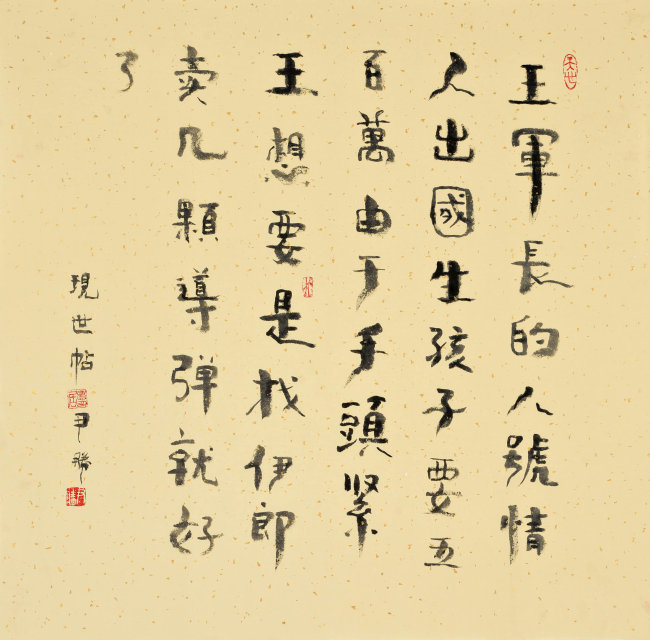 王軍長的八號情
人出國生孩子要五
百萬由于手頭緊
王想要是找伊郎
卖几顆導弹就好
了
現世帖 尹勝